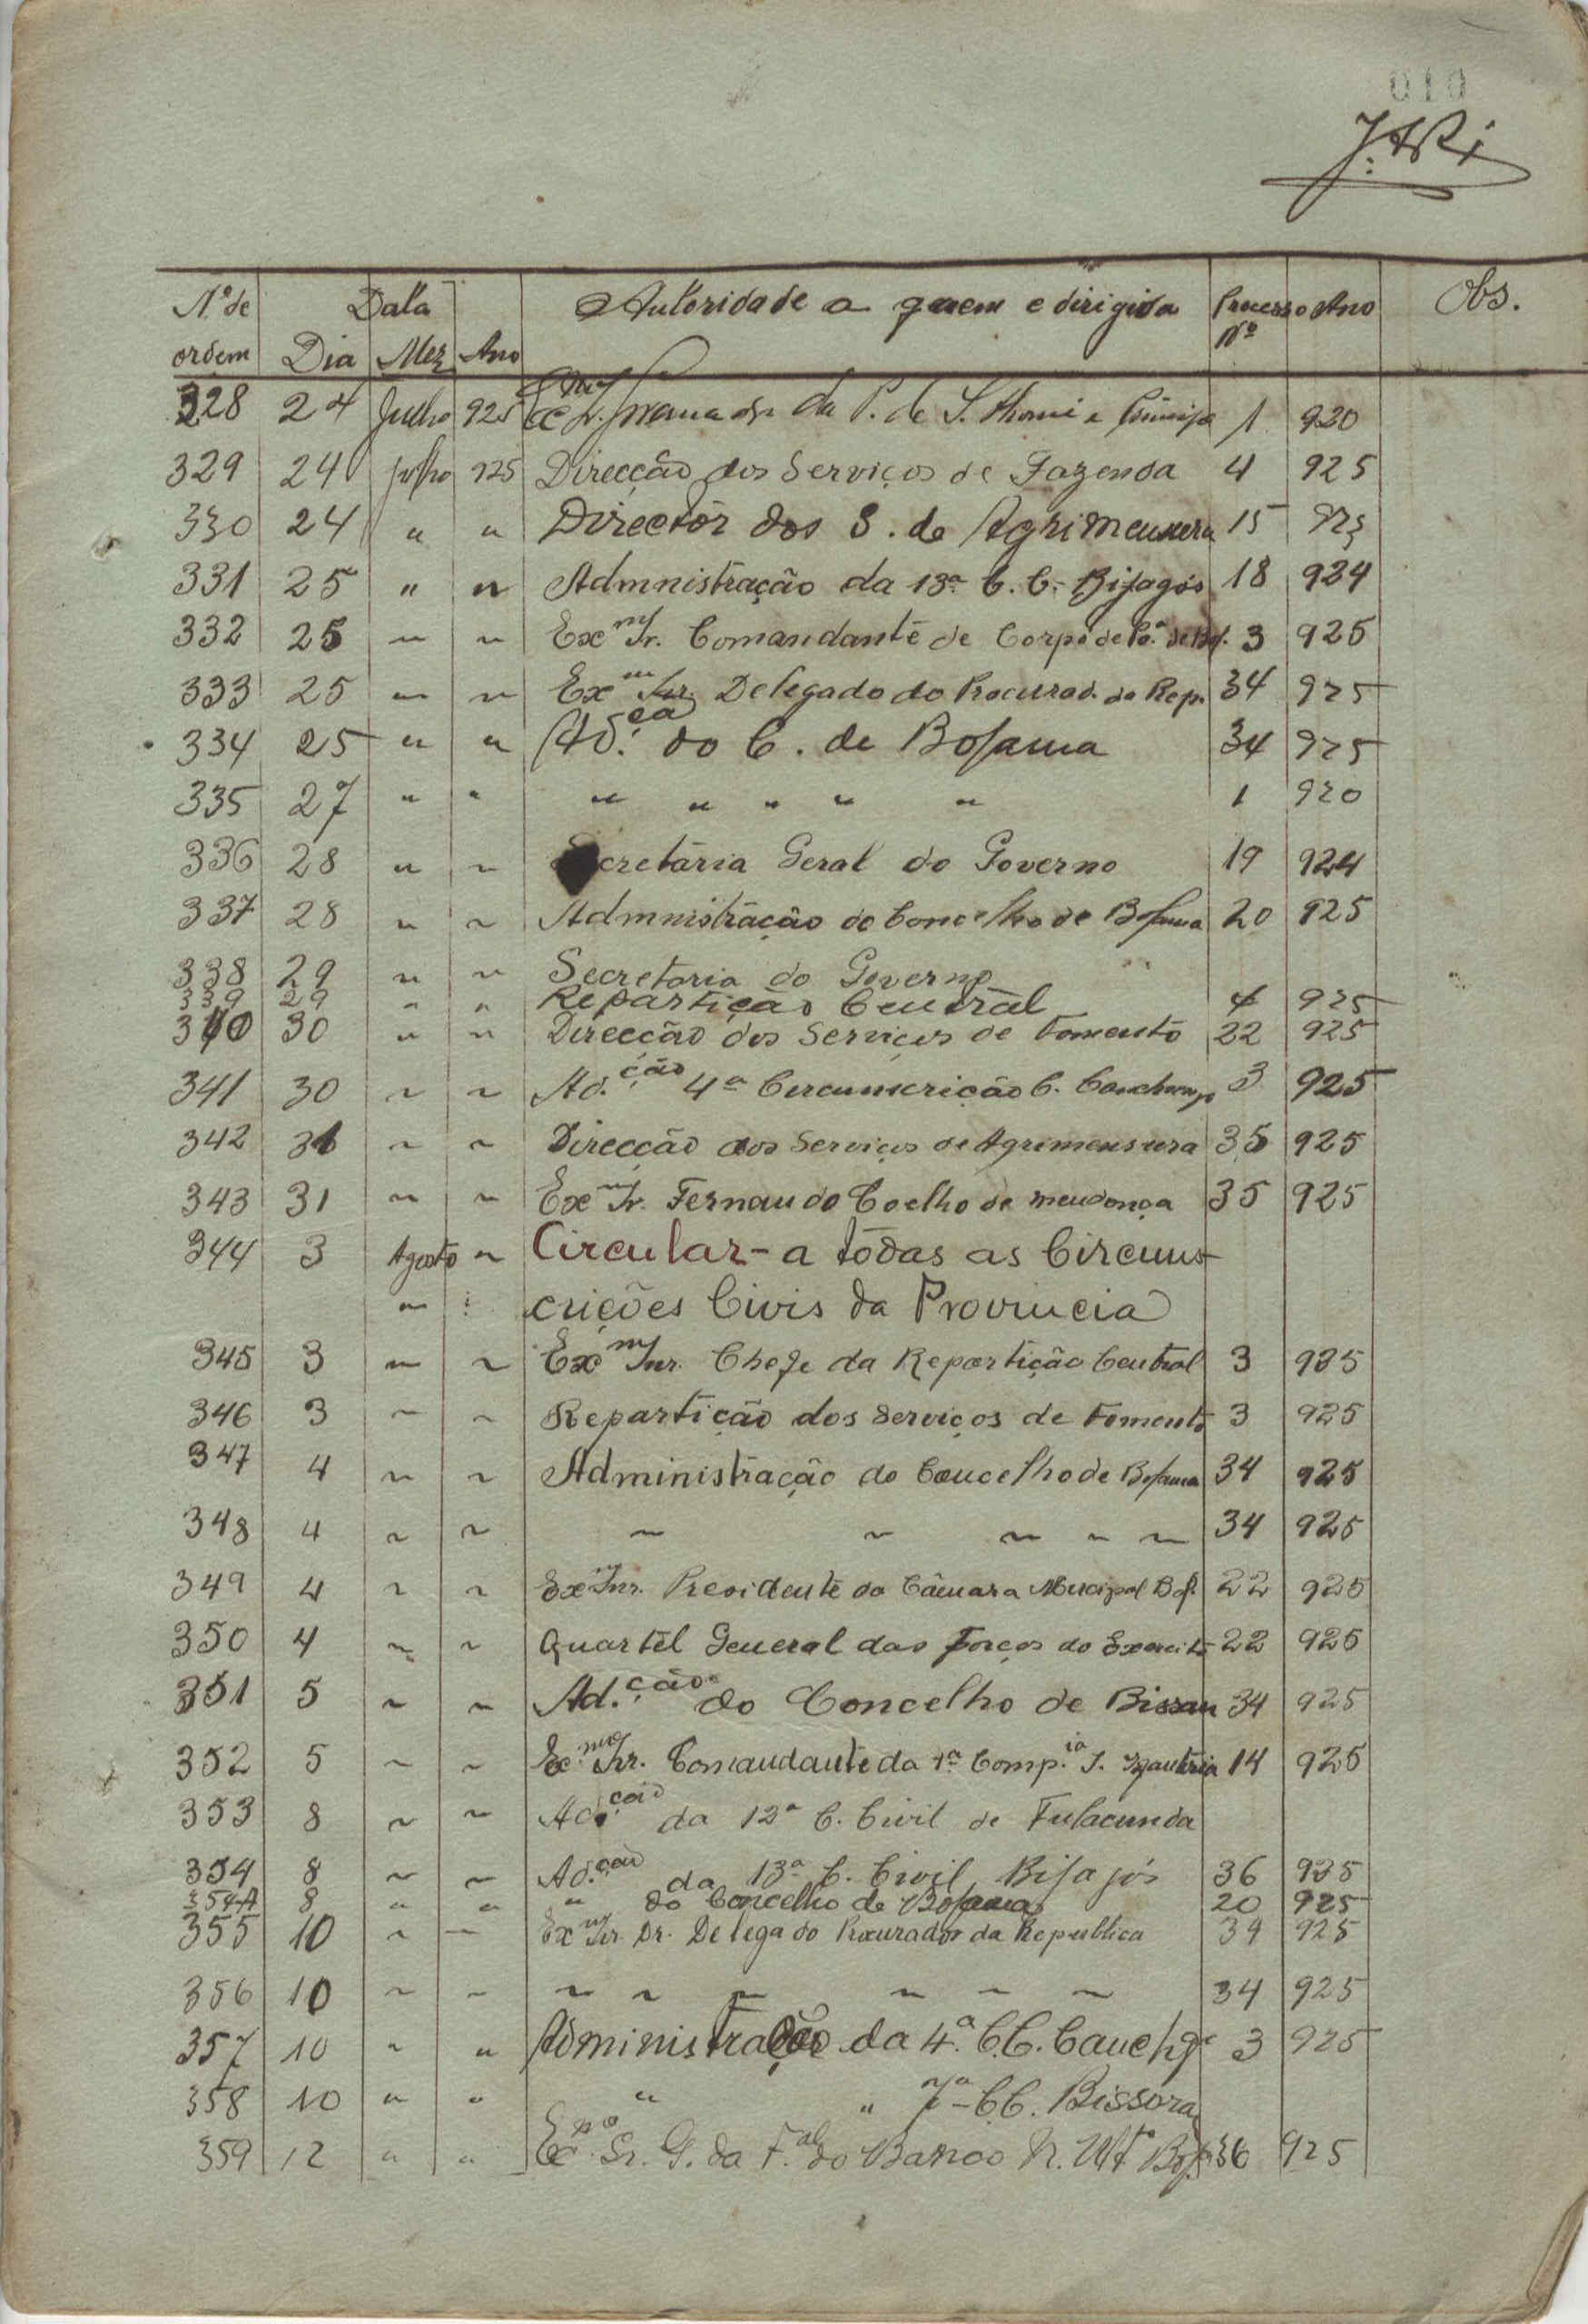 010
Nº de ordem Data Dia Mez Ano Autoridade a quem e dirigida Processo Nº Ano Obs.
328 24 Julho 925 Exmo Sr. Governador da P. de S. Thomé e Principe 1 920
329 24 Julho 925 Direcção dos Serviços de Fazenda 4 925
330 24 " " Director dos S. de Agrimensura 15 925
331 25 " " Admnistração da 13ª C. C. Bijagós 18 924
332 25 " " Exmo Sr. Comandante de Corpo de Pa. de Bol. 3 925
333 25 " " Exmo Snr. Delegado do Procurad. da Rep. 34 925
334 25 " " Ad.ção do C. de Bolama 34 925
335 27 " " " " " " " 1 920
336 28 " " Secretária Geral do Governo 19 924
337 28 " " Admnistração do Concelho de Bolama 20 925
338 29 " " Secretaria do Governo
339 29 " " Repartição Central 4 925
340 30 " " Direcção dos Serviços de Fomento 22 925
341 30 " " Ad.ção 4ª Circunscrição C. Canchungo 3 925
342 31 " " Direcção dos Serviços de Agrimensura 35 925
343 31 " " Exmo Sr. Fernando Coelho de Mendonça 35 925
344 3 Agosto " Circular - a tôdas as Circuns-
" : crições Civis da Provincia
345 3 " " Exmo Snr. Chefe da Repartição Central 3 925
346 3 " " Repartição dos Serviços de Fomento 3 925
347 4 " " Administração do Concelho de Bolama 34 925
348 4 " " " " " " " 34 925
349 4 " " Exmo Snr. Presidente da Câmara Mucipal Bol. 22 925
350 4 " " Quartel General das Forças do Exercito 22 925
351 5 " " Ad.ção do Concelho de Bissau 34 925
352 5 " " Exmo Snr. Comandante da 1ª Comp.ia I. Infantria 14 925
353 8 " " Ad.ção da 12ª C. Civil de Fulacunda
354 8 " " Ad.ção da 13ª C. Civil Bijajós 36 925
354A 8 " " " do Concelho de Bolama 20 925
355 10 " " Exmo Snr. Dr. Delegado Procurador da Republica 34 925
356 10 " " " " " " " " 34 925
357 10 " " Administração da 4ª C.C. Canchgo 3 925
358 10 " " " " 7ª C.C. Bissorã
359 12 " " Exmo Sr. G. da F.al do Banco N. Ultº Bol. 36 925